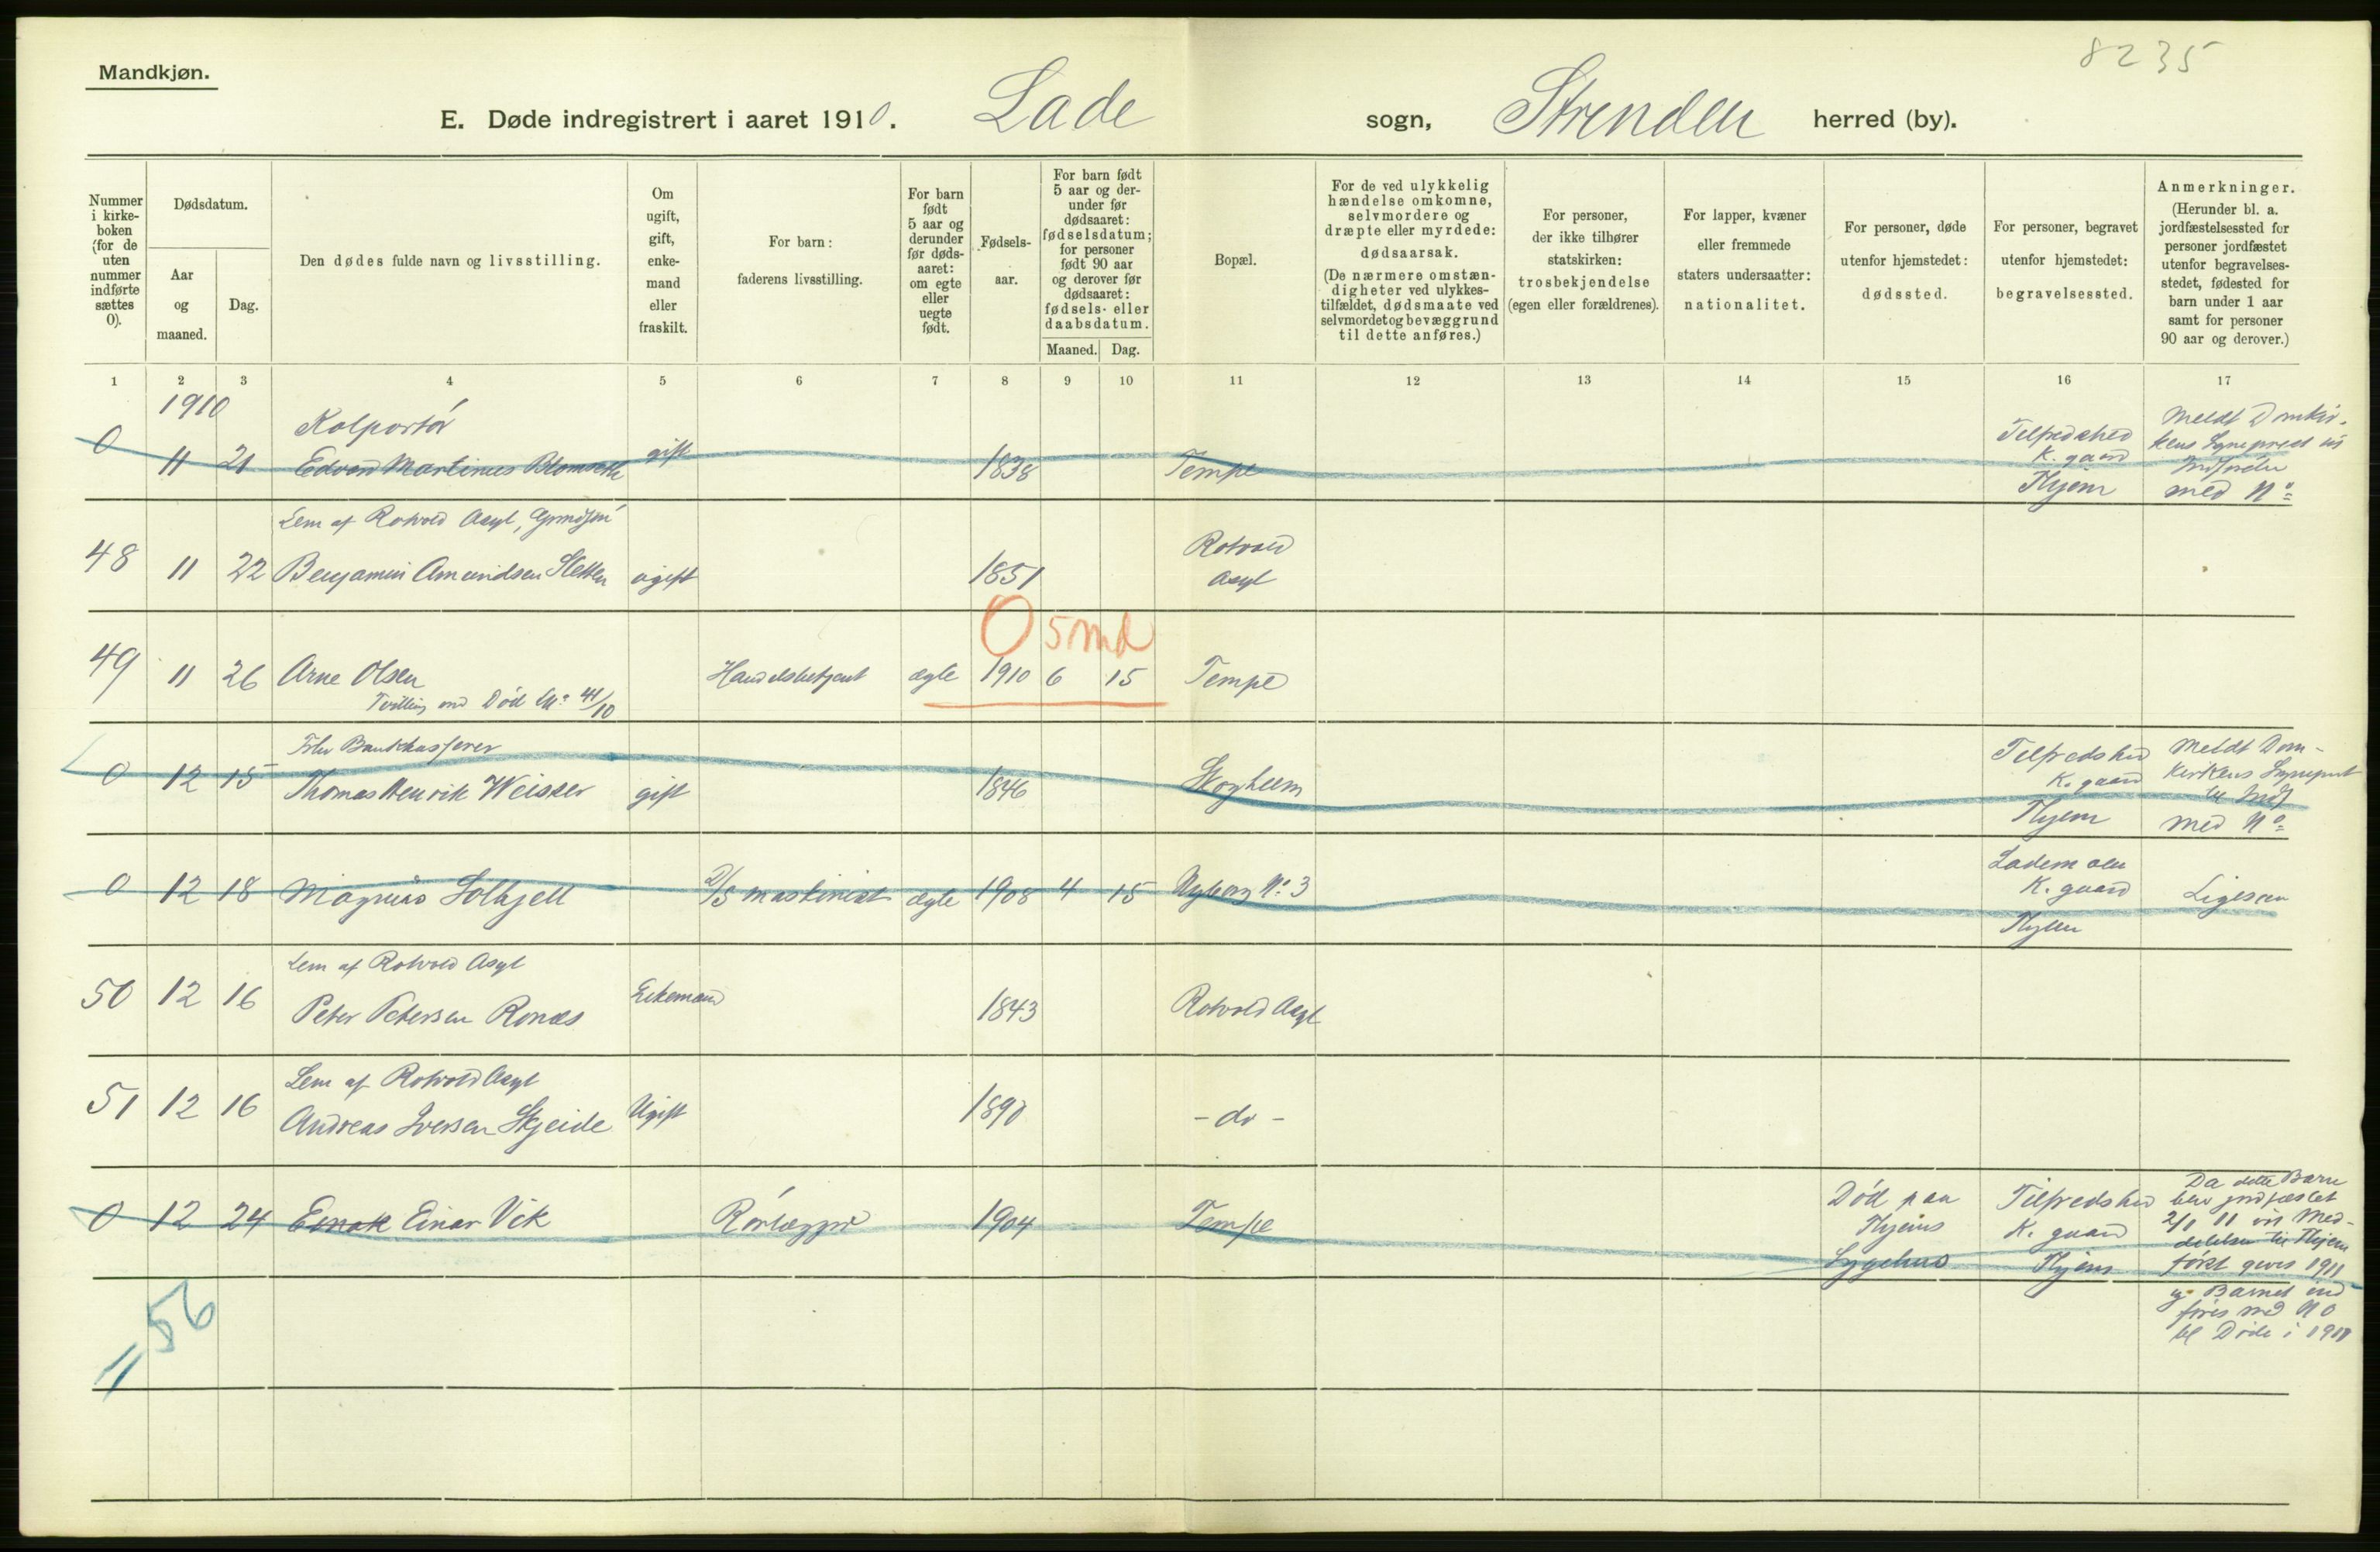 8235
Mandkjøn.
E. Døde indregistrert i aaret 1910. Lade sogn, Strinden herred (by).
Nummer i kirke- boken (for de uten nummer indførte sættes 0).
Dødsdatum.
Aar og maaned.
Dag.
Den dødes fulde navn og livsstilling.
Om ugift, gift, enke- mand eller fraskilt.
For barn: faderens livsstilling.
For barn født 5 aar og derunder før døds- aaret: om egte eller uegte født.
Fødsels- aar.
For barn født 5 aar og der- under før dødsaaret: fødselsdatum; for personer født 90 aar og derover før dødsaaret: fødsels- eller daabsdatum.
Maaned. Dag.
Bopæl.
For de ved ulykkelig hændelse omkomne, selvmordere og dræpte eller myrdede: dødsaarsak. (De nærmere omstæn- digheter ved ulykkes- tilfældet, dødsmaate ved selvmordet og bevæggrund til dette anføres.)
For personer, der ikke tilhører statskirken: trosbekjendelse (egen eller forældrenes).
For lapper, kvæner eller fremmede staters undersaatter: nationalitet.
For personer, døde utenfor hjemstedet: dødssted.
For personer, begravet utenfor hjemstedet: begravelsessted.
Anmerkninger. (Herunder bl. a. jordfæstelsessted for personer jordfæstet utenfor begravelses- stedet, fødested for barn under 1 aar samt for personer 90 aar og derover.)
1 2 3 4 5 6 7 8 9 10 11 12 13 14 15 16 17
1910
Kolportör
0 11 21 Edvard Martinus Blomseth gift 1838 Tempe
Tilfredshed
K. gaard
Thjem
Meldt Domkir-
kens Sogneprest
med No
Lem af Rotvold Asyl,
48 11 22 Benjamin Amundsen Sletten ugift 1851 Rotvold
Asyl
0 5 md
49 11 26 Arne Olsen Handelsbetjent ægte 1910 6 15 Tempe
Tvilling med Död No 41/10
0 12 15 Thomas Henrik Weisser gift 1846 Skogheim
Tilfredshed
K. gaard
Thjem
Meldt Dom-
kirkens Sogneprest
med No
0 12 18 Magnus Solhjell D/S maskinist ægte 1908 4 15 Nyborg No 3
K. gaard
Ligesaa
Lem af Rotvold Asyl
50 12 16 Peter Petersen Ronæs Enkemand 1843 Rotvold Asyl
Lem af Rotvold Asyl
51 12 16 Andreas Iversen Skjeide Ugift 1890 - do -
0 12 24 Einar Vik Rörlægger 1904 Tempe
Död paa
Thjems
Sygehus
Tilfredshed
K. gaard
Thjem
Da dette Barn
blev jordfæstet
2/1 11 vil Med-
delelse til Thjem
först gives 1911
og Barnet ind-
føres med No 0
bl Döde i 1911
56
11